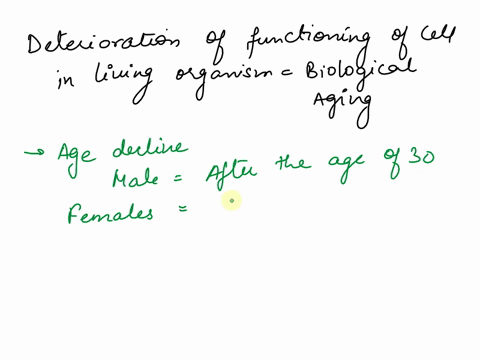 Deterioration of functioning of cell
in living organism = Biological
Aging
→ Age decline
Male = After the age of 30
Females =